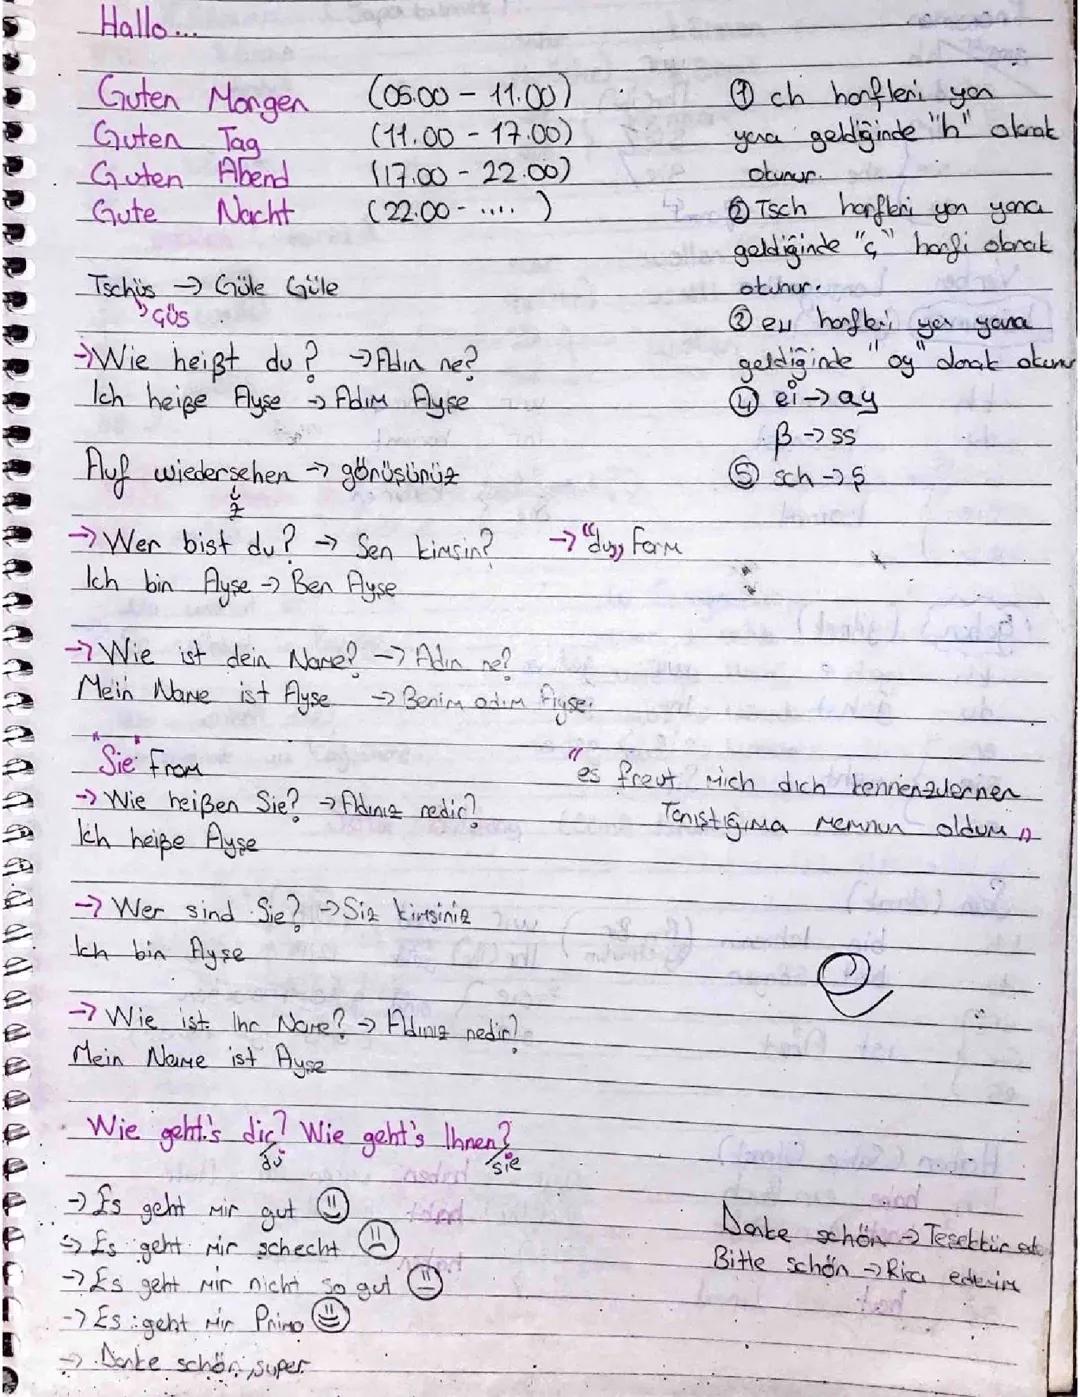 Hallo...
Guten Morgen (05.00 - 11.00)
Guten Tag (11.00 - 17.00)
Guten Abend (17.00 - 22.00)
Gute Nacht (22.00 - .... )
① ch harfleri yan
yana geldiğinde "h" olarak
okunur.
② Tsch harfleri yan yana
geldiğinde "ç" harfi olarak
okunur.
③ eu harfleri yan yana
geldiğinde "oy" olarak okunur
④ ei → ay
β → ss
⑤ sch → ş
Tschüs → Güle Güle
çüs
→ Wie heißt du? → Adın ne?
Ich heiße Ayse → Adım Ayşe
Auf wiedersehen → görüşünüz
z
→ Wer bist du? → Sen kimsin? → "du" Form
Ich bin Ayşe → Ben Ayşe
→ Wie ist dein Name? → Adın ne?
Mein Name ist Ayşe → Benim adım Ayşe.
"Sie" From
→ Wie heißen Sie? → Adınız nedir?
Ich heiße Ayşe
"es freut mich dich kennenzulernen
Tanıştığıma memnun oldum"
→ Wer sind Sie? → Siz kimsiniz
Ich bin Ayşe
→ Wie ist Ihr Name? → Adınız nedir?
Mein Name ist Ayşe
Wie geht's dir? Wie geht's Ihnen?
du sie
→ Es geht mir gut
→ Es geht mir schecht
→ Es geht mir nicht so gut
→ Es geht mir Primo
→ Danke schön, super
Danke schön → Teşekkür ede
Bitte schön → Rica ederim